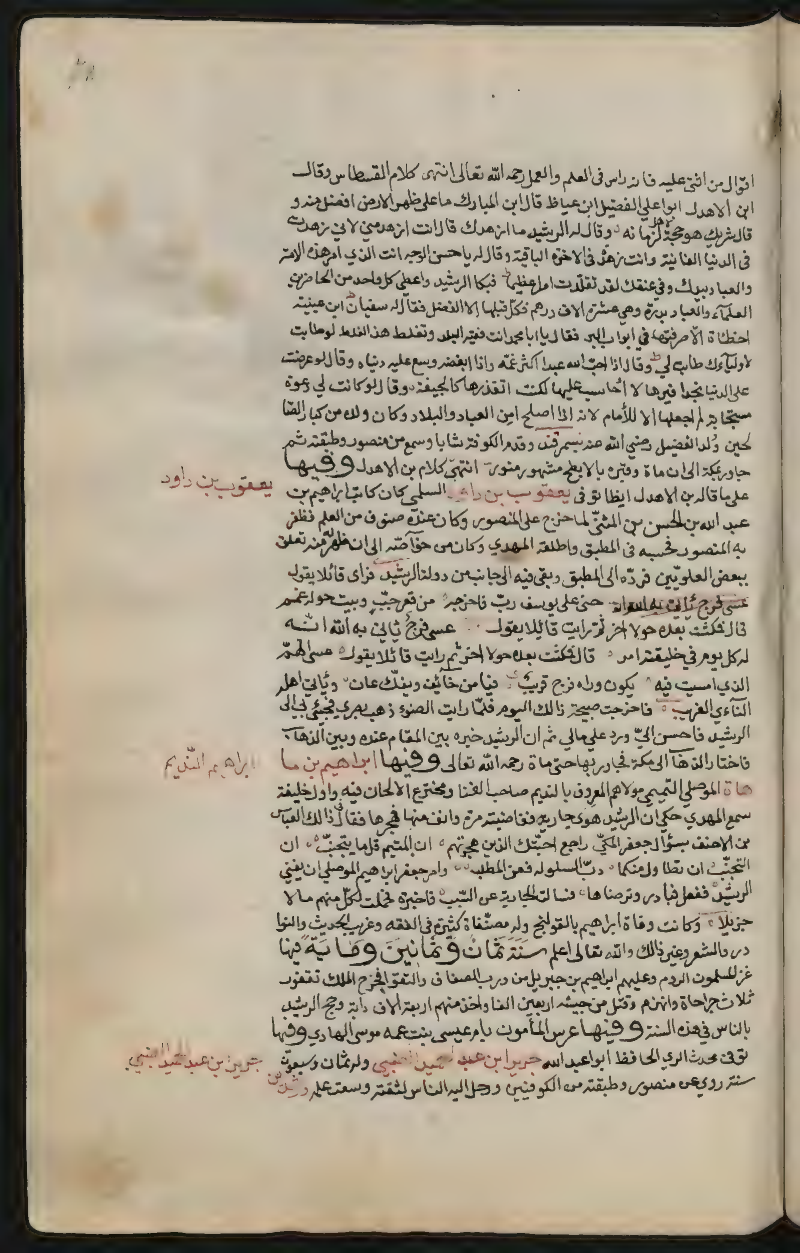 اقوال من افتى عليه فانه راس فى العلم والعمل رحمه الله تعالى انتهى كلام القسطاس وقال
ابن الاهدل ابو على الفضيل ابن عياظ قال ابن المبارك ما على ظهر الارض افضل منه و
قال شريك هو حجة لزمانه وقال له الرشيد ما ازهدك قال انت ازهد مني لاني زهدت
فى الدنيا الفانية وانت تزهد فى الاخرة الباقية وقال له يا حسن الوجه انت الذي امر هذه الامة
والعباد بيدك وفى عنقك لقد تقلدت امرا عظيما فبكا الرشيد واعطى كل واحد من الحاضرين
العلماء والعباد بدرة وهى عشرة الاف درهم فكل قبلها الا الفضل فقال له سفيان ابن عيينة
اخطاة الا صرفتها في ابواب البر فقال يا ابا محمد انت فقيه البلد وتغلط هذا الغلط لو طابت
لاوليك طابت لي وقال اذا احب الله عبدا اكثر غمه واذا ابغضه وسع عليه دنياه وقال لو عرضت
على الدنيا بحذافيرها لا احاسب عليها لكنت اتقذرها كالجيفة وقال لو كانت لي دعوة
مستجابة لم اجعلها الا للأمام لانه اذا اصلح امن العباد والبلاد وكان ولده من كبار الصا
لحين ولد الفضيل رضي الله عنه بسمرقند وقدم الكوفة شابا وسمع من منصور وطبقته ثم
جاور بمكة الى ان ماة وقبره بالابطح مشهور مزور انتهى كلام بن الاهدل وفيها
على ما قاله بن الاهدل ايظا توفى يعقوب بن داود السلمي كان كاتب ابراهيم بن
يعقوب بن داود
عبد الله بن الحسن بن المثنى لما خرج على المنصور وكان عنده صنوف من العلم فظفر
به المنصور فحبسه فى المطبق واطلقه المهدي وكان من خواصه الى ان ظهر منه تعلق
ببعض العلويين فرده الى المطبق وبقى فيه الى جانب من دولة الرشيد فراى قائلا يقول
حنى على يوسف رب فاخرجه من قعر جب وبيت حوله غمم
قال فمكثت بعده حولا اخر ثم رايت قائلا يقول عسى فرج ياتي به الله انه
له كل يوم في خليقته امر قال فمكثت بعده حولا اخر ثم رايت قائلا يقول عسى الهم
الذي امسيت فيه يكون وراه فرج قريب فيامن خائف ويفك عان وياتي اهله
النائي الغريب فاخرجت صبيحة ذالك اليوم فلما رايت الضوء ذهب بصري فجيئ بي الى
الرشيد فاحسن الي ورد علي مالي ثم ان الرشيد خيره بين المقام عنده وبين الذهاب
فاختار الذهاب الى مكة فجاور بها حتى ماة رحمه الله تعالى وفيها ابراهيم بن ما
ابراهيم النديم
هاة الموصلي التميمي مولاهم المعروف بالنديم صاحب الغنا ومخترع الالحان فيه واول خليفة
سمع المهدي حكي ان الرشيد هوى جارية فغاضبته مرة وانف منها فهجرها فقال فى ذالك العباس
بن الاحنف بسؤال جعفر البرمكي راجع احبتك الذين هجرتهم ان المتيم قل ما يتجنب ان
التجنب ان تطاول منكما دب السلو له فعز المطلب وامر جعفر ابراهيم الموصلي ان يغني
الرشيد ففعل فبادر وترضاها فسالت الجارية عن السبب فاخبرة فحملت لكل منهم مالا
جزيلا وكانت وفاة ابراهيم بالقولنج وله مصنفاة كثيرة فى الفقه وغريب الحديث والنوا
در والشعر وغير ذالك والله تعالى اعلم سنة ثمان وثمانين وماية فيها
غز المسلمون الروم وعليهم ابراهيم بن جبريل من درب الصفاف والتقو فجرح الملك تقفور
ثلاث جراحاة وانهزم وقتل من جيشه اربعين الفا واخذ منهم اربعة الاف دابة وحج الرشيد
بالناس في هذه السنة وفيها عرس المأمون بام عيسى بنت عمه موسى الهادي وفيها
توفى محدث الري الحافظ ابو عبد الله جرير ابن عبد الحميد الضبي وله ثمان وسبعون
جرير ابن عبد الحميد الضبي
سنة روى عن منصور وطبقته من الكوفيين ورحل اليه الناس لثقته وسعت علمه